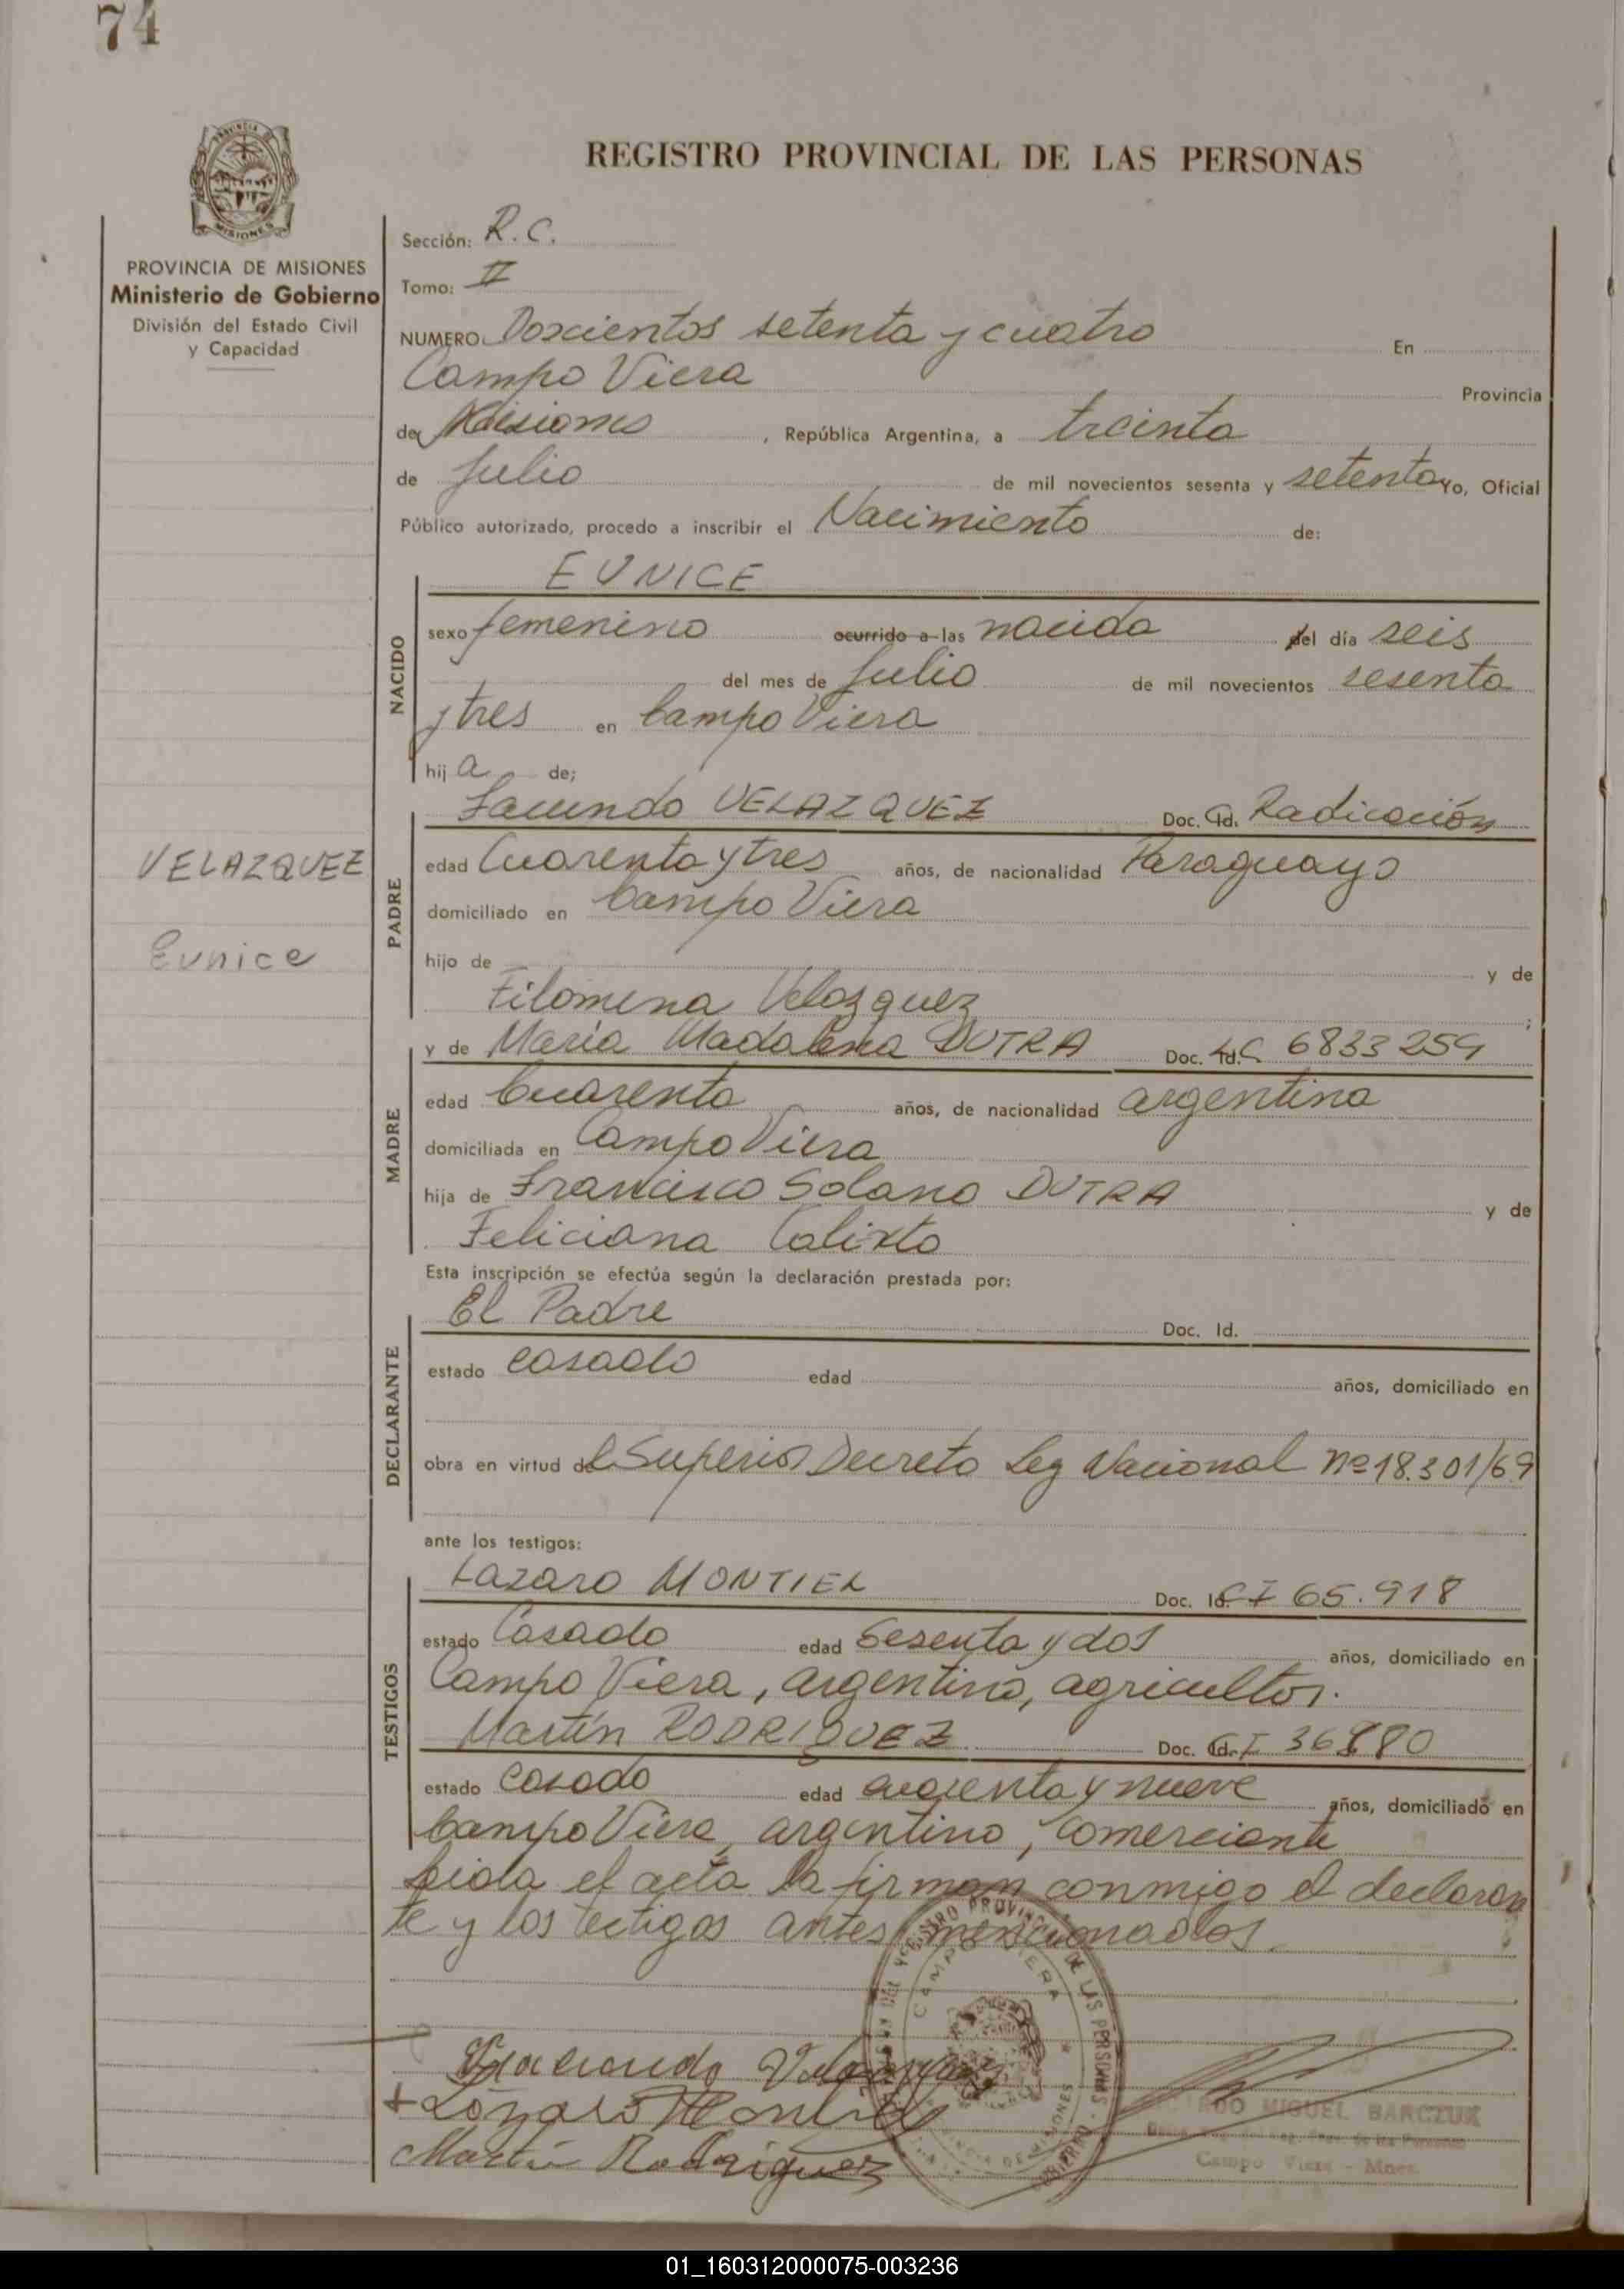 74
PROVINCIA DE
MISIONES
PROVINCIA DE MISIONES
Ministerio de Gobierno
División del Estado Civil
y Capacidad
REGISTRO PROVINCIAL DE LAS PERSONAS
Sección: R. C.
Tomo: II
NUMERO Doscientos setenta y cuatro En
Campo Viera Provincia
de Misiones, República Argentina, a treinta
de Julio de mil novecientos sesenta y setenta Yo, Oficial
Público autorizado, procedo a inscribir el Nacimiento de:
NACIDO
EUNICE
sexo femenino ocurrido a las nacida del día seis
del mes de Julio de mil novecientos sesenta
y tres en Campo Viera
hij a de;
PADRE
Facundo VELAZQUEZ Doc. Id. Radicación
VELAZQUEZ
Eunice
edad Cuarenta y tres años, de nacionalidad Paraguayo
domiciliado en Campo Viera
hijo de y de
Filomena Velazquez ;
MADRE
y de María Madalena DUTRA Doc. Id. LC 6833259
edad Cuarenta años, de nacionalidad argentina
domiciliada en Campo Viera
hija de Francisco Solano DUTRA y de
Feliciana Calixto
Esta inscripción se efectúa según la declaración prestada por:
DECLARANTE
El Padre Doc. Id.
estado casado edad años, domiciliado en
obra en virtud del Superior Decreto Ley Nacional nº 18.301/69
ante los testigos:
TESTIGOS
Lazaro MONTIEL Doc. Id. CI 65.918
estado Casado edad Sesenta y dos años, domiciliado en
Campo Viera, argentino, agricultor.
Martín RODRIGUEZ Doc. Id. CI
estado casado edad cuarenta y nueve años, domiciliado en
Campo Viera, argentino, comerciante
Leida el acta la firman conmigo el declaran
te y los testigos antes mencionados.
REGISTRO PROVINCIAL DE LAS PERSONAS
CAMPO VIERA
Facundo Velazquez
Lázaro Montiel
Martín Rodriguez
MIGUEL BARCZUK
Campo Viera - Mnes.
01_160312000075-003236